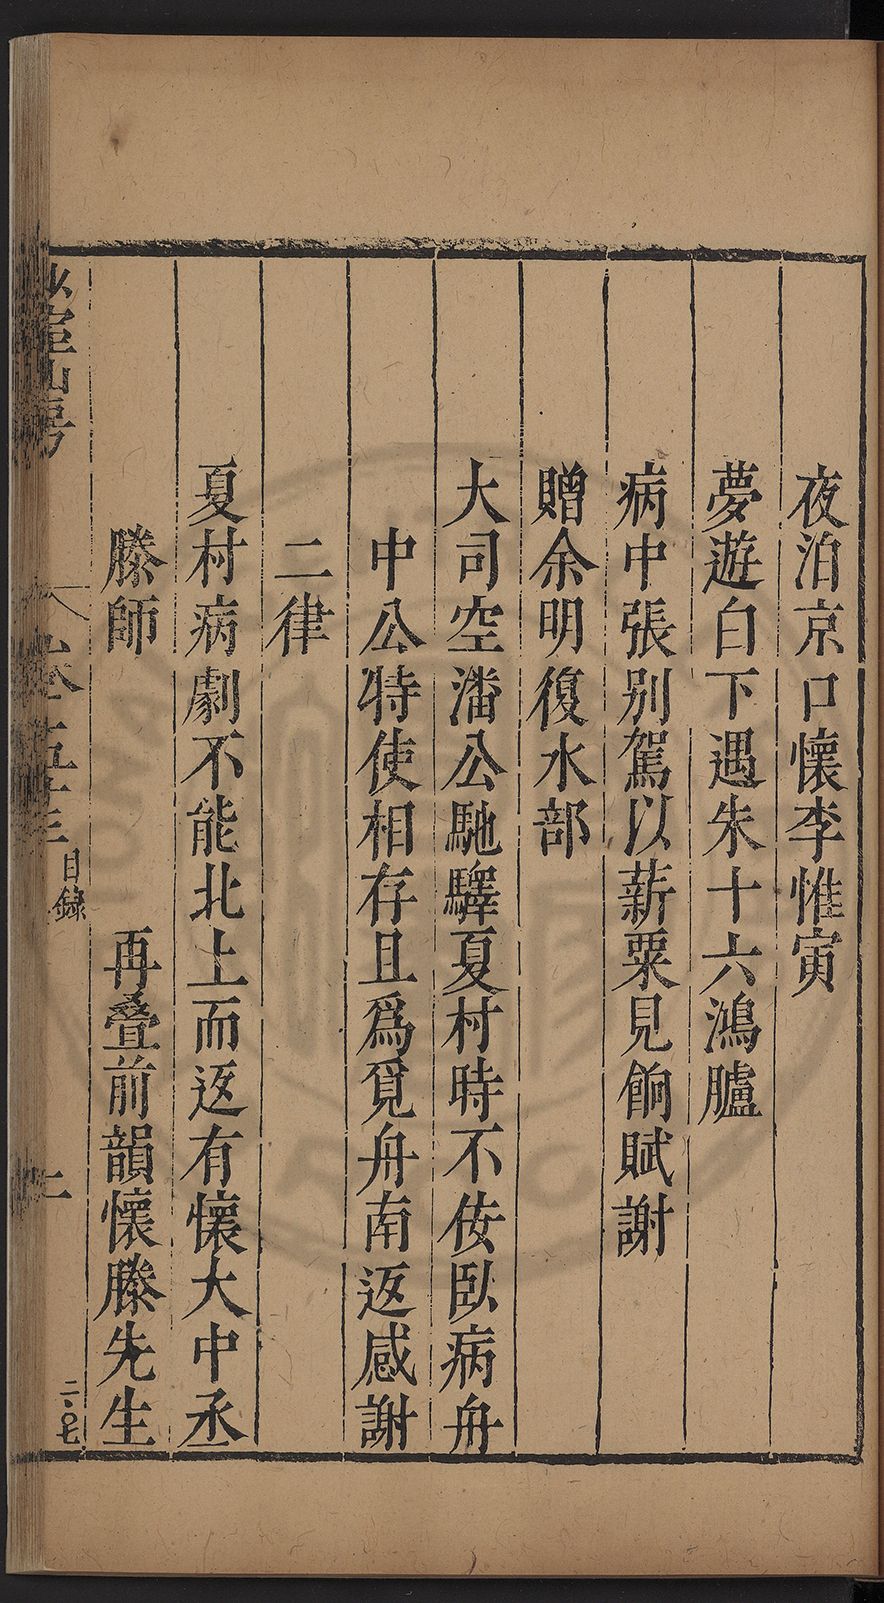 夜泊京口懷李惟寅
夢遊白下遇朱十六鴻臚
病中張別駕以薪粟見餉賦謝
贈余明復水部
大司空潘公馳驛夏村時不佞臥病舟
中公特使相存且爲覓舟南返感謝
二律
夏村病劇不能北上而返有懷大中丞
滕師　再疊前韻懷滕先生
山房
卷五十三 目錄
二
二〇七